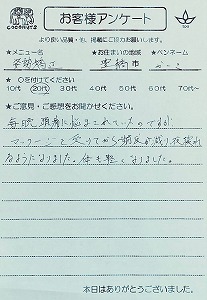 COCONUTS
お客様アンケート
より良い品質・他、掲載にご協力お願いします。
★メニュー名 ★お住まいの地域 ★ペンネーム
市
★ ○を付けてください
10代 20代 30代 40代 50代 60代 70代~
★ご意見・ご感想をお聞かせください。
毎晩 頭痛に悩まされていたのですが
マッサージを受けてから頭痛が減り夜眠れ
るようになりました。体も軽くなりました。
本日はありがとうございました。